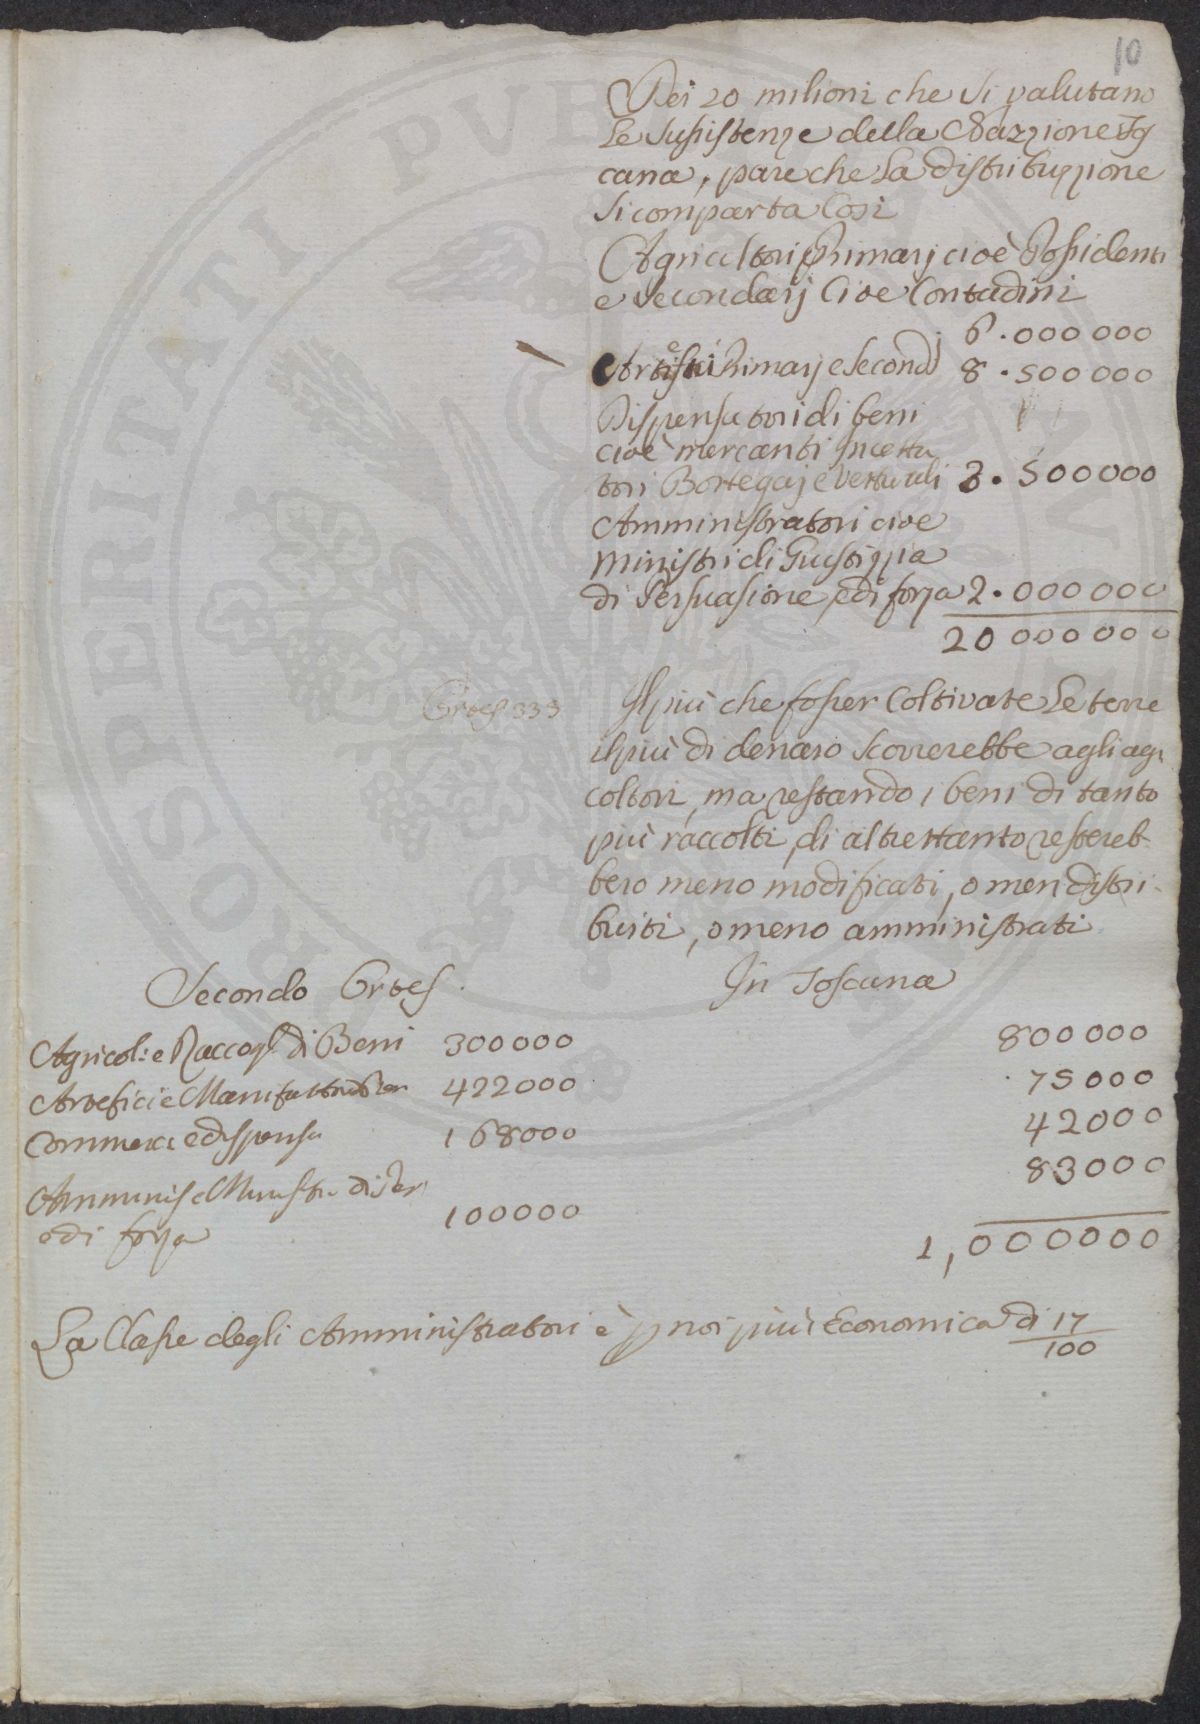 10
Dei 20 milioni che si valutano
le sussistenze della Nazzione Tos
cana, pare che la distribuzzione
si comparta così
Agricultori Primarj cioè Possidenti
e secondarj cioe Contadini
6.000000
Artefici Primarj e Second 8.500000
Dispensatori di beni
cioè mercanti Incetta
tori Bottegaj e Vetturali 3.500000
Amministratori cioe
ministri di Giustizzia
di Persuasione, e di forza 2.000000
20000000
Ortes 333
Il più che fosser coltivate le terre
il più di denaro scorrerebbe agli agri
coltori, ma restando i beni di tanto
più raccolti, di altrettanto restereb-
bero meno modificati, o men distri-
buiti, o meno amministrati
Secondo Ortes. In Toscana
Agricol: e Raccogl: di Beni 300000 800000
Artefici e Manifattori 422000 75000
Commerci e dispensa 168000 42000
83000
Amminis e Ministri di Per
e di forza 100000
1,000000
La Classe degli Amministratori è p noi più Economica di 17
100
PROSPERITATI PUBLICAE